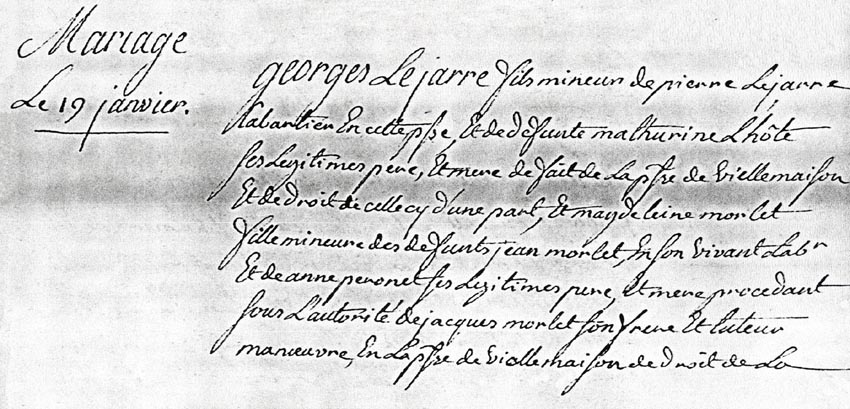 Mariage
Le 19 janvier.
georges Lejarre fils mineur de pierre Lejarre
Cabartier En cette psse, Et de defunte mathurine Lhôte
ses Legitimes pere, Et mere de fait de La psse de vielle maison
Et de droit de celle cy d'une part, Et magdeleine morlet
fille mineure des defunts jean morlet, En son vivant Labr
Et de anne peronet ses Legitimes pere, Et mere procedant
sous L'autorité de jacques morlet son frere Et tuteur
manœuvre, En La psse de vielle maison de droit de La